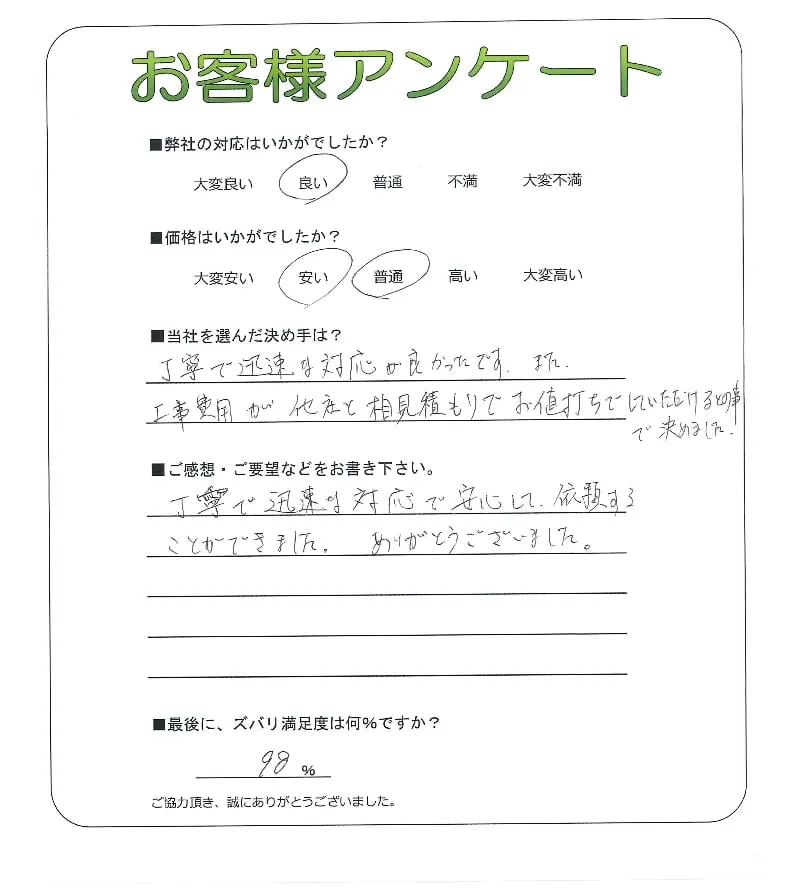 お客様アンケート
■弊社の対応はいかがでしたか？
大変良い 良い 普通 不満 大変不満
■価格はいかがでしたか？
大変安い 安い 普通 高い 大変高い
■当社を選んだ決め手は？
丁寧で迅速な対応が良かったです。また、
工事費用が他店と相見積もりでお値打ちでしていただけるとの事
で決めました。
■ご感想・ご要望などをお書き下さい。
丁寧で迅速な対応で安心して、依頼する
ことができました。 ありがとうございました。
■最後に、ズバリ満足度は何％ですか？
98 ％
ご協力頂き、誠にありがとうございました。